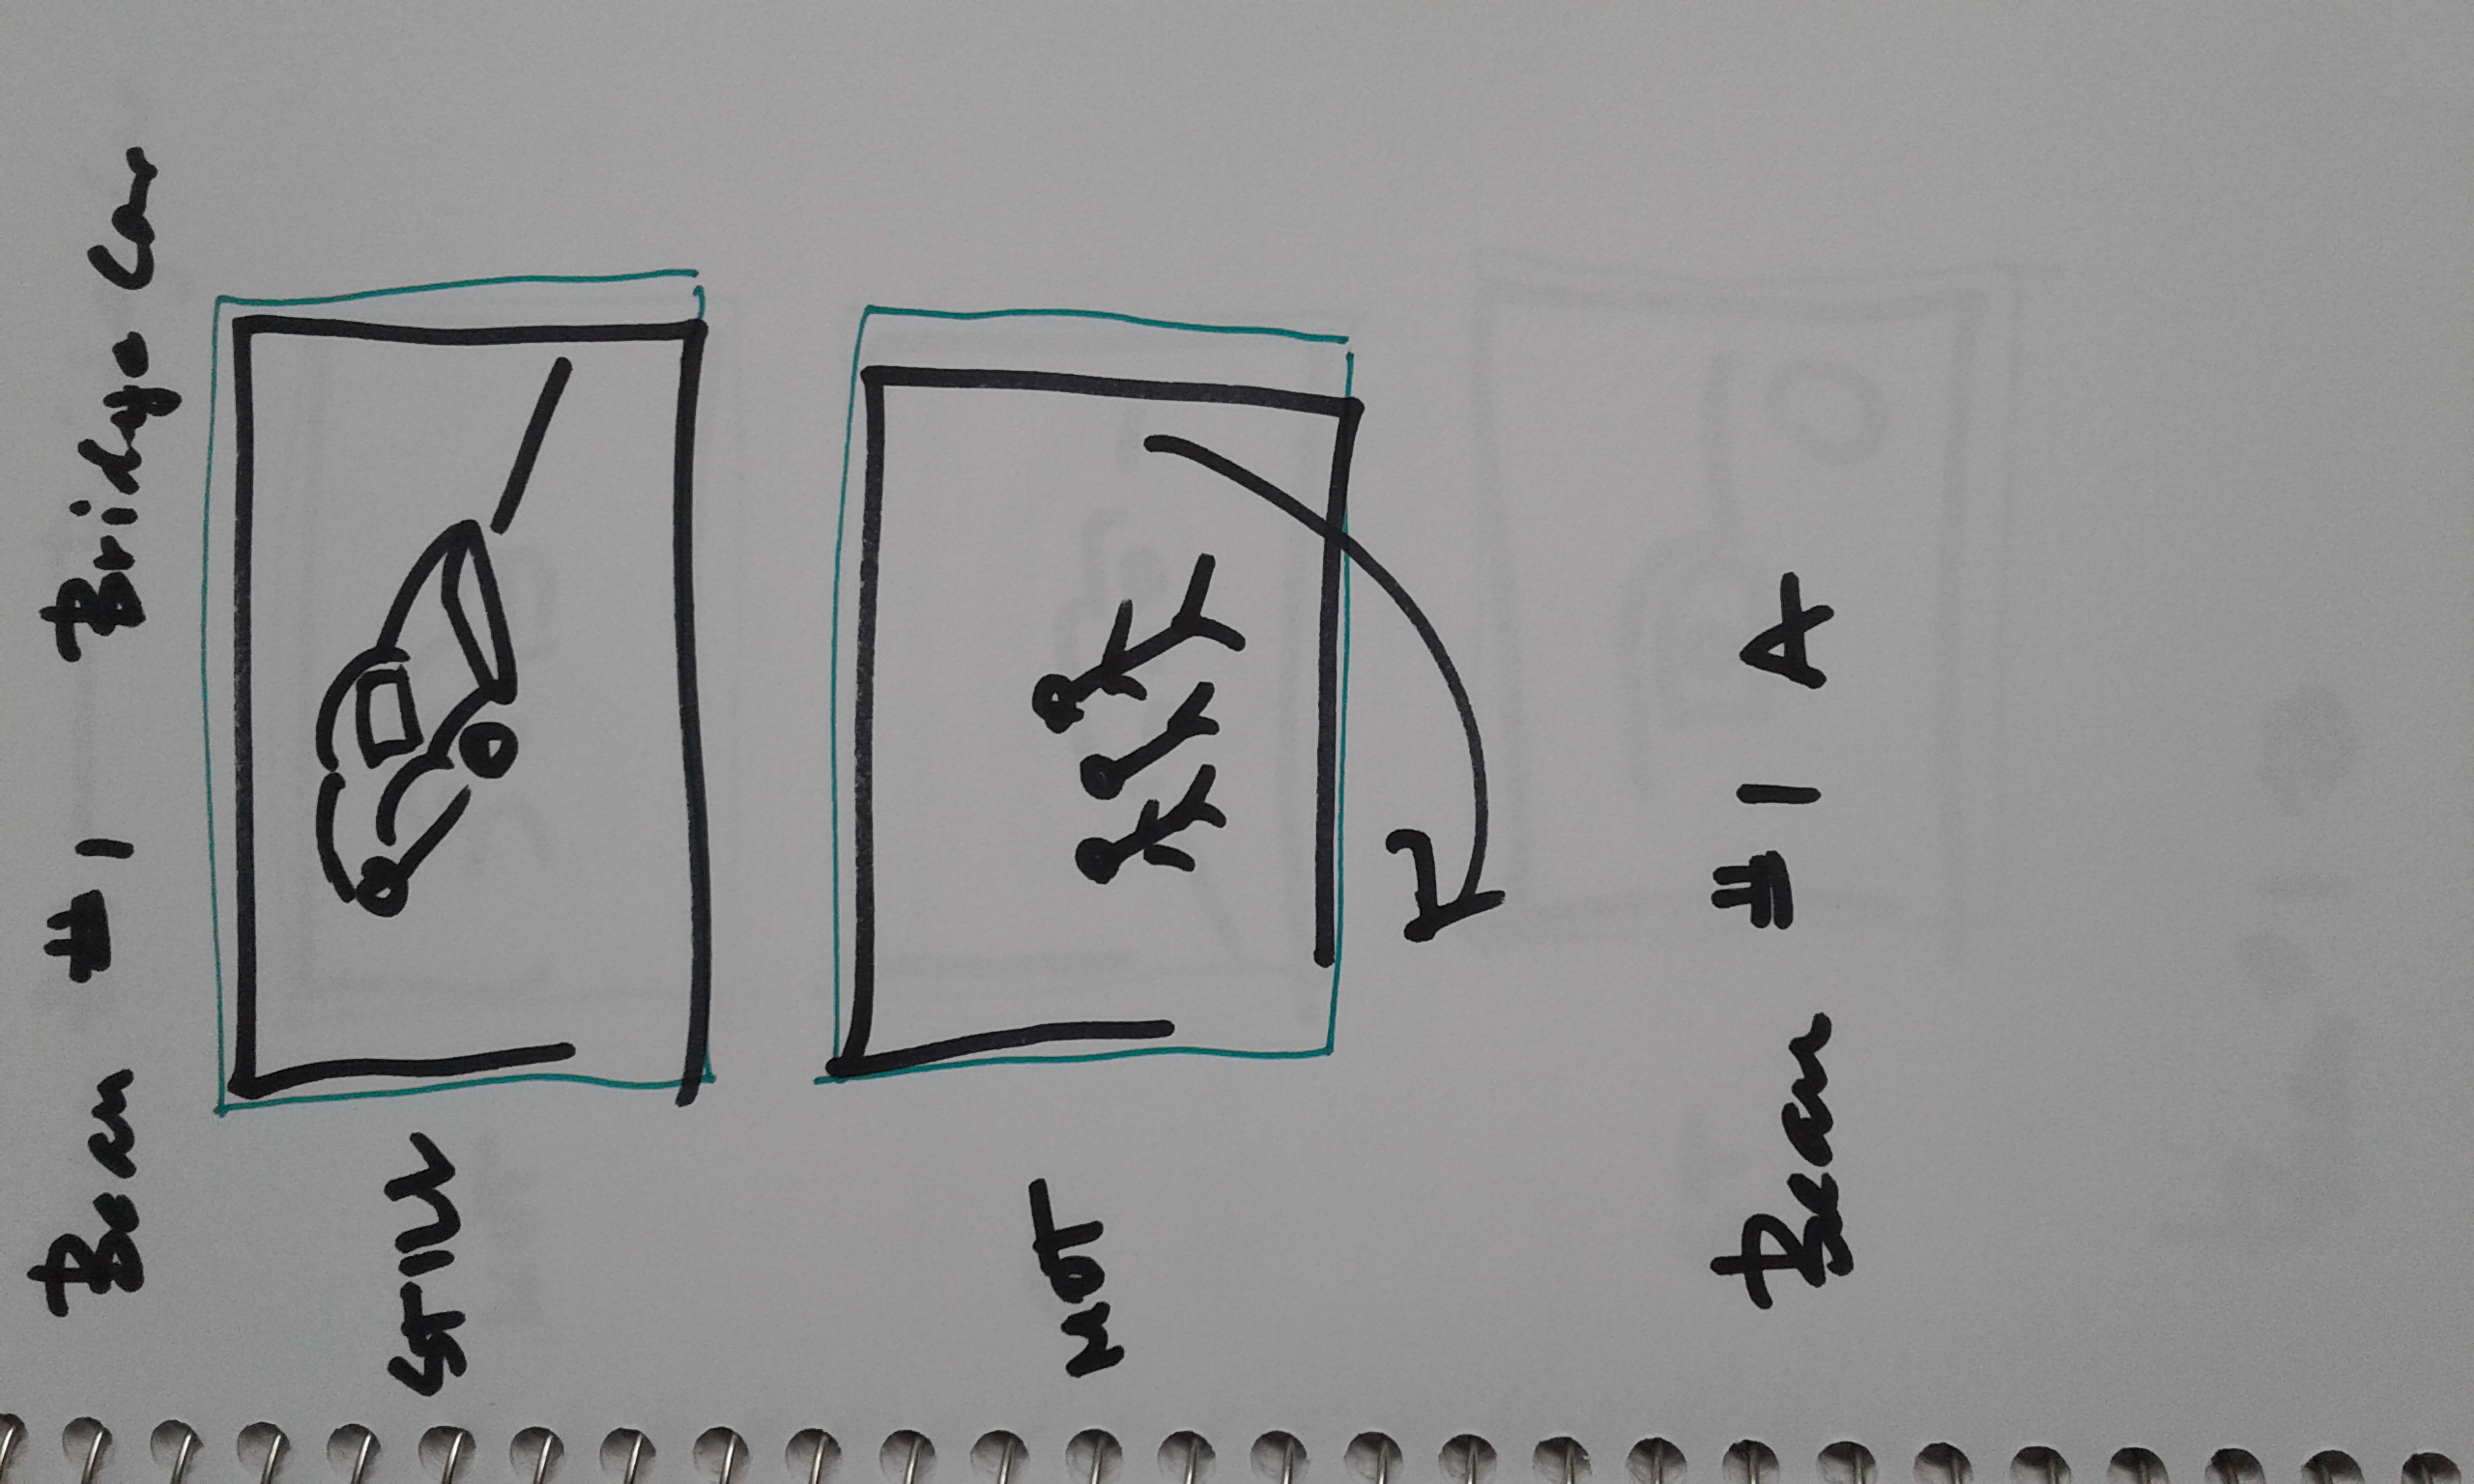 Bean #1 Bridge Car
STILL
MOT
Bean #1 A